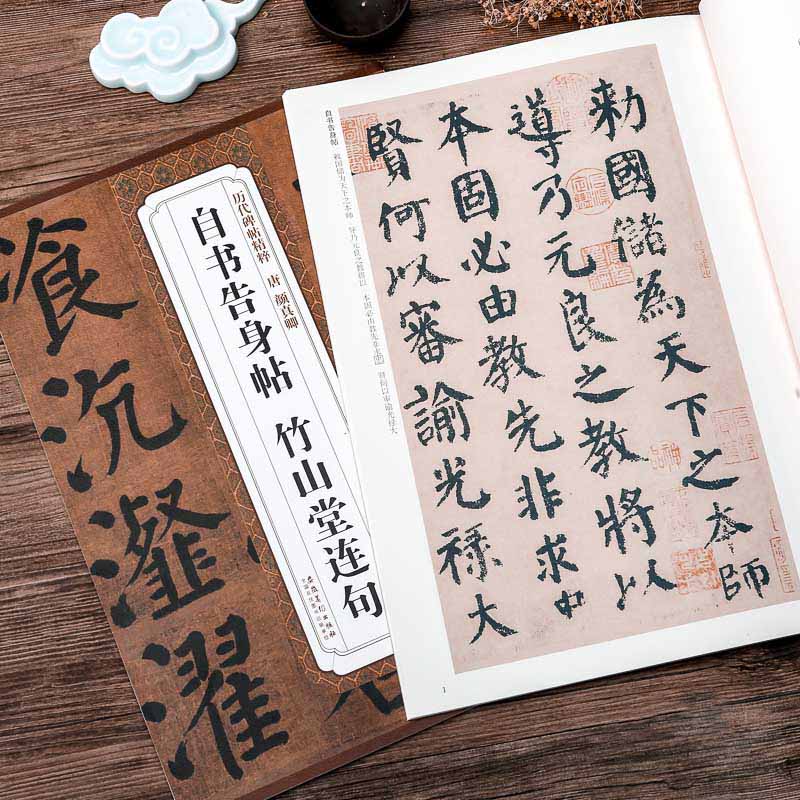 飡沆瀣濯
历代碑帖精粹 唐 颜真卿
自书告身帖 竹山堂连句
安徽美术出版社
全国百佳图书出版单位
勑國儲為天下之本師
導乃元良之教將以
本固必由教先非求中
賢何以審諭光祿大
自书告身帖 敕国储为天下之本师 导乃元良之教将以 本固必由教先非求中 贤何以审谕光禄大
1